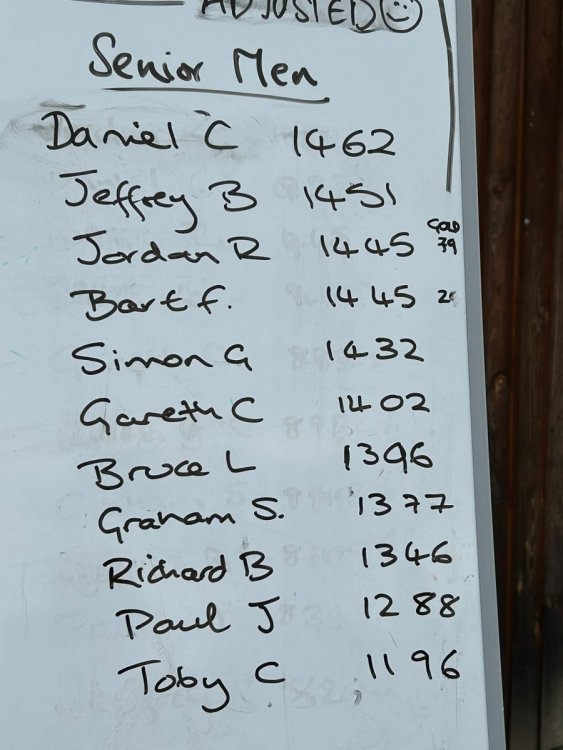 ADJUSTED
Senior Men
Daniel C 1462
Jeffrey B 1451
Jordan R 1445 GOLD 39
Bart F. 1445
Simon G 1432
Gareth C 1402
Bruce L 1396
Graham S. 1377
Richard B 1346
Paul J 1288
Toby C 1196